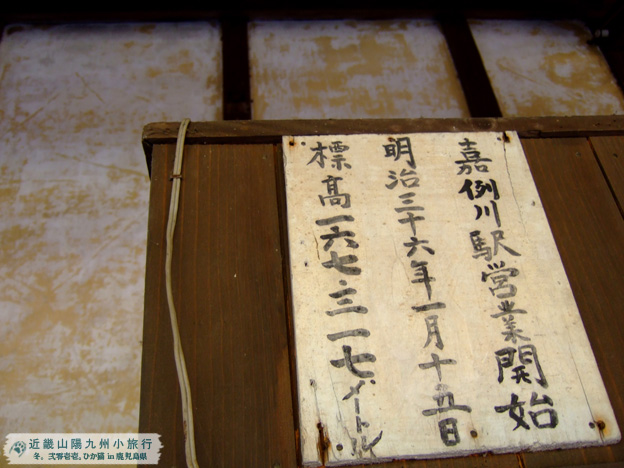 嘉例川駅営業開始
明治三十六年一月十五日
標高一六七.三一七メートル
近畿山陽九州小旅行
冬。弐零壱壱。ひか猫 in 鹿児島県